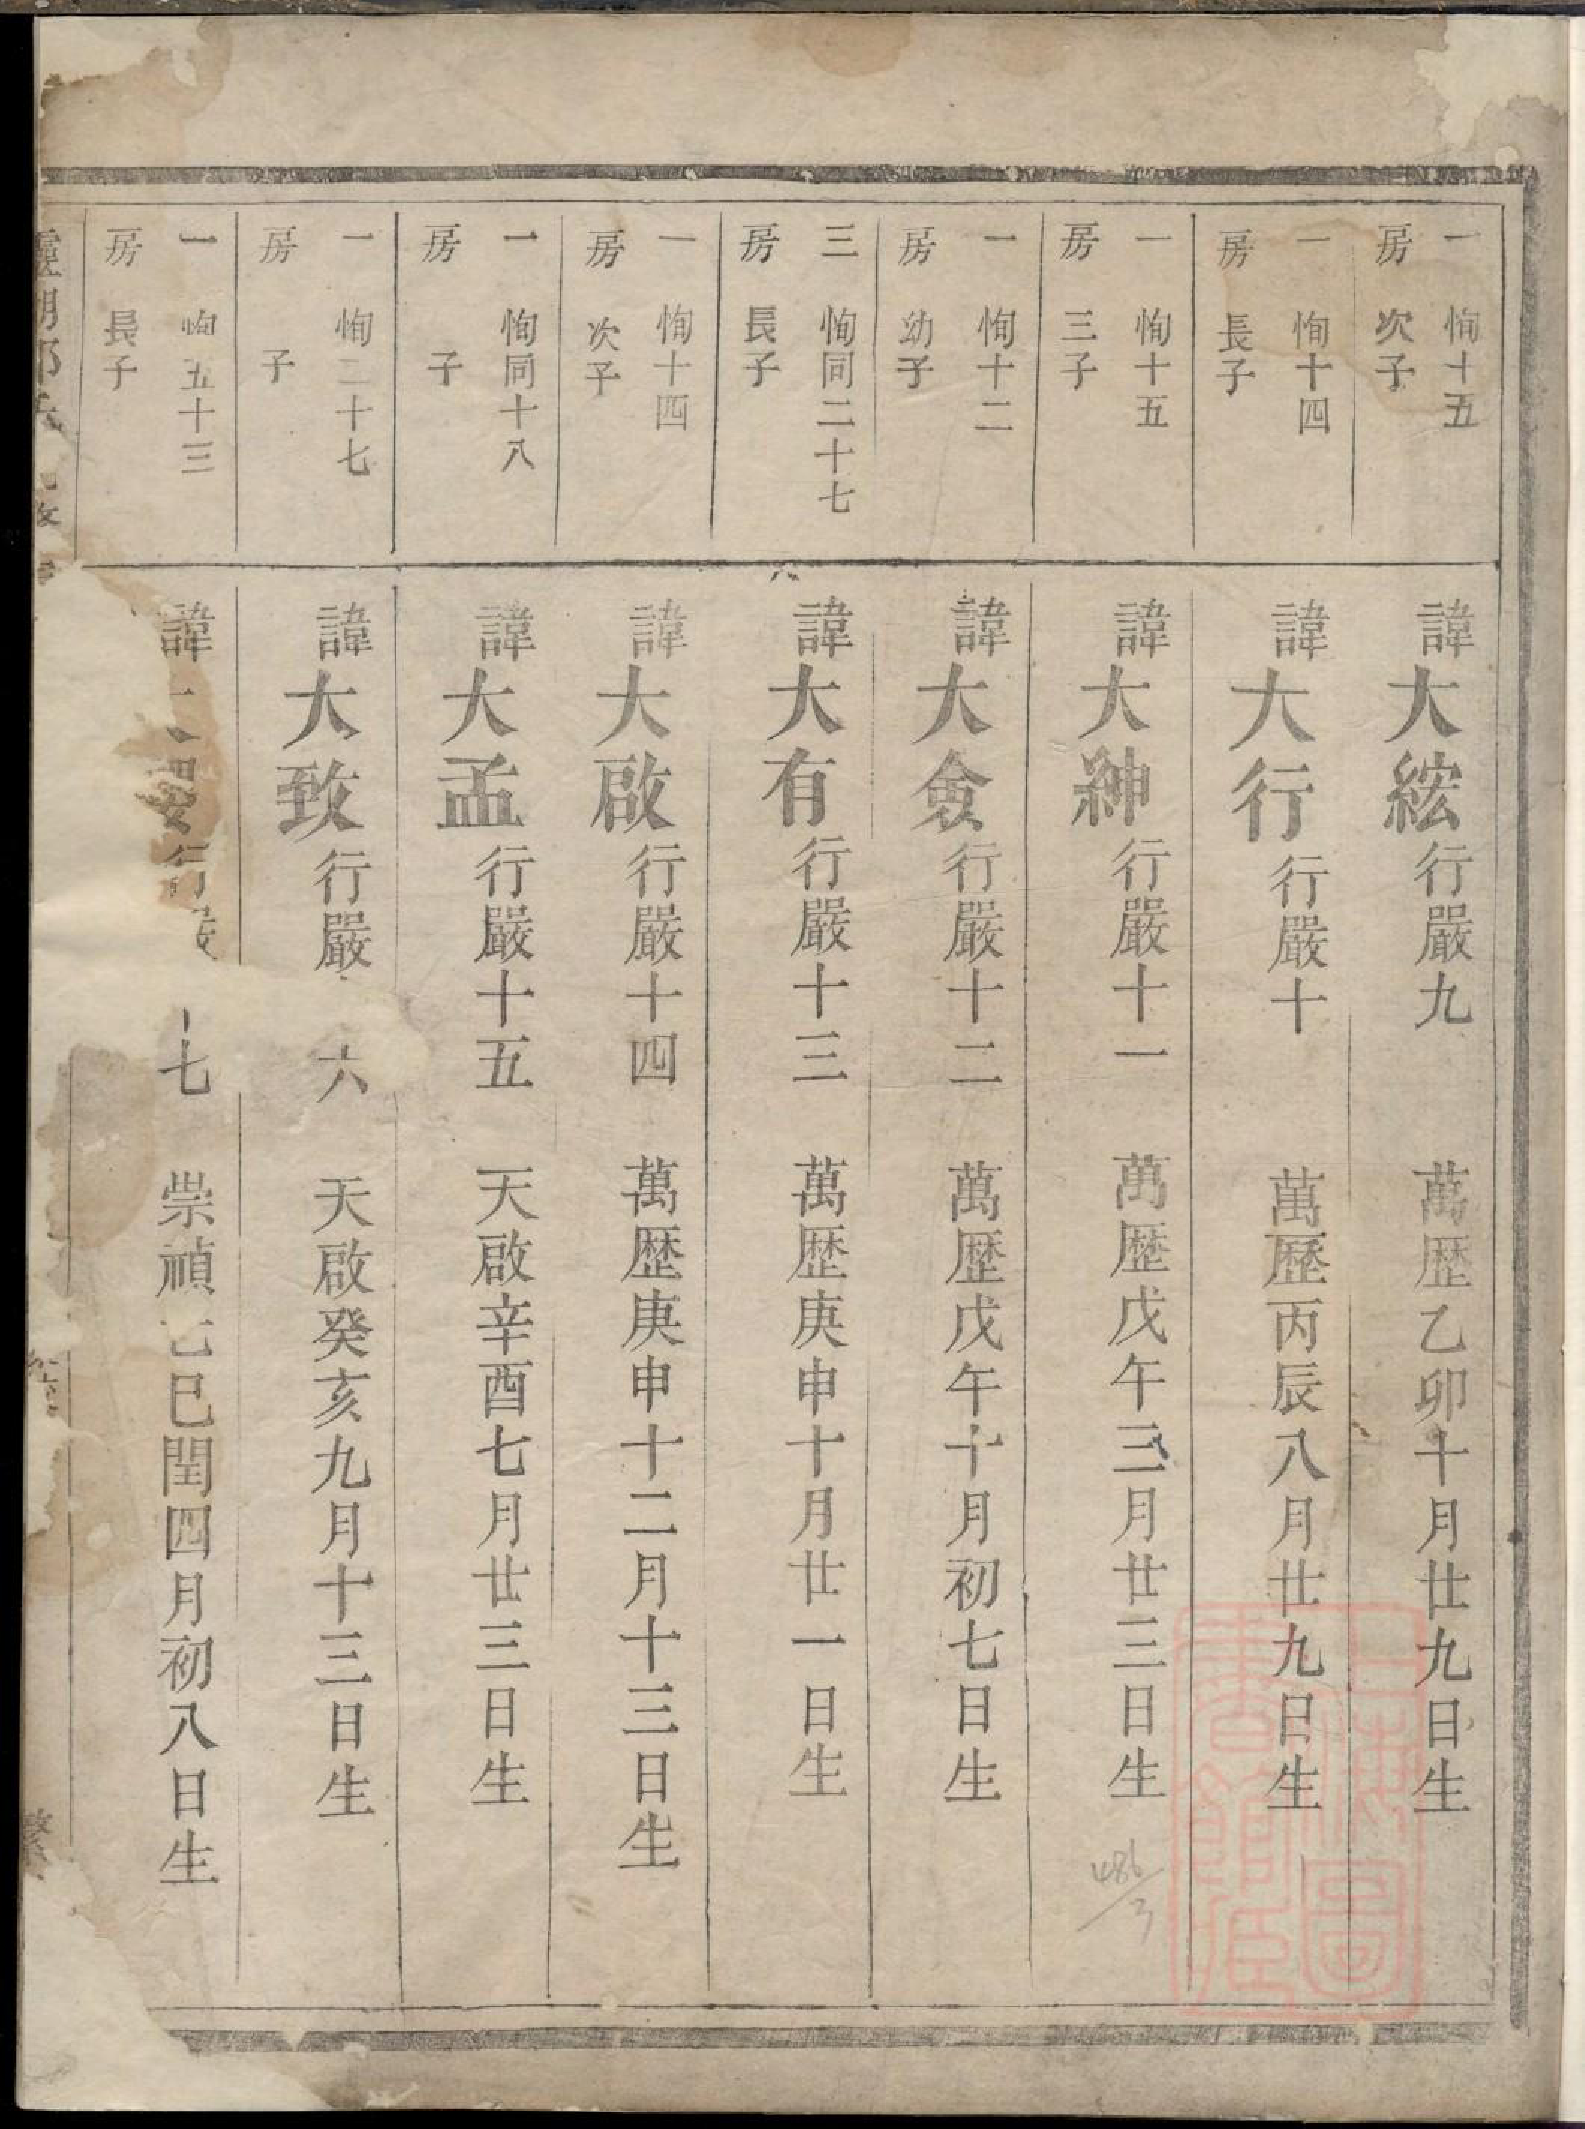 一房 恂十五次子
諱大紘行嚴九 萬歴乙卯十月廿九日生
一房 恂十四長子
諱大行行嚴十 萬歷丙辰八月廿九日生
一房 恂十五三子
諱大紳行嚴十一 萬歴戊午三月廿三日生
一房 恂十二幼子
諱大僉行嚴十二 萬歴戊午十月初七日生
三房 恂同二十七長子
諱大有行嚴十三 萬歴庚申十月廿一日生
一房 恂十四次子
諱大啟行嚴十四 萬歴庚申十二月十三日生
一房 恂同十八子
諱大孟行嚴十五 天啟辛酉七月廿三日生
一房 恂二十七子
諱大致行嚴 六 天啟癸亥九月十三日生
一房 恂五十三長子
諱 行嚴 七 崇禎己巳閏四月初八日生
486/3